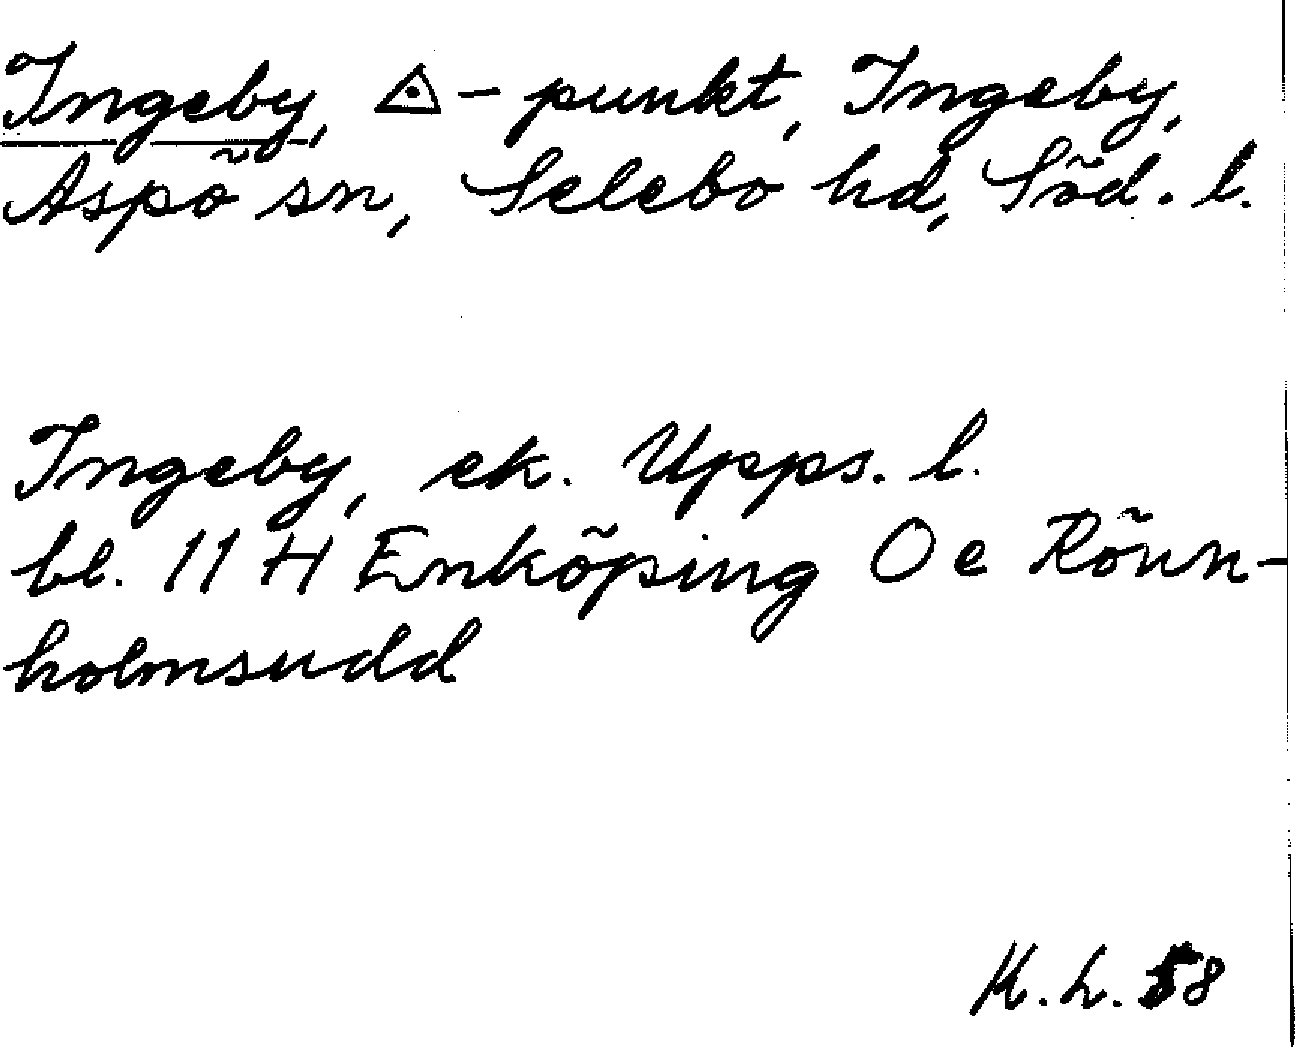 Ingeby, △-punkt, Ingeby,
Aspö sn, Selebo hd, Söd. l.
Ingeby, ek. Upps. l.
bl. 11 H Enköping Oe Rönn-
holmsudd
K.L. 58